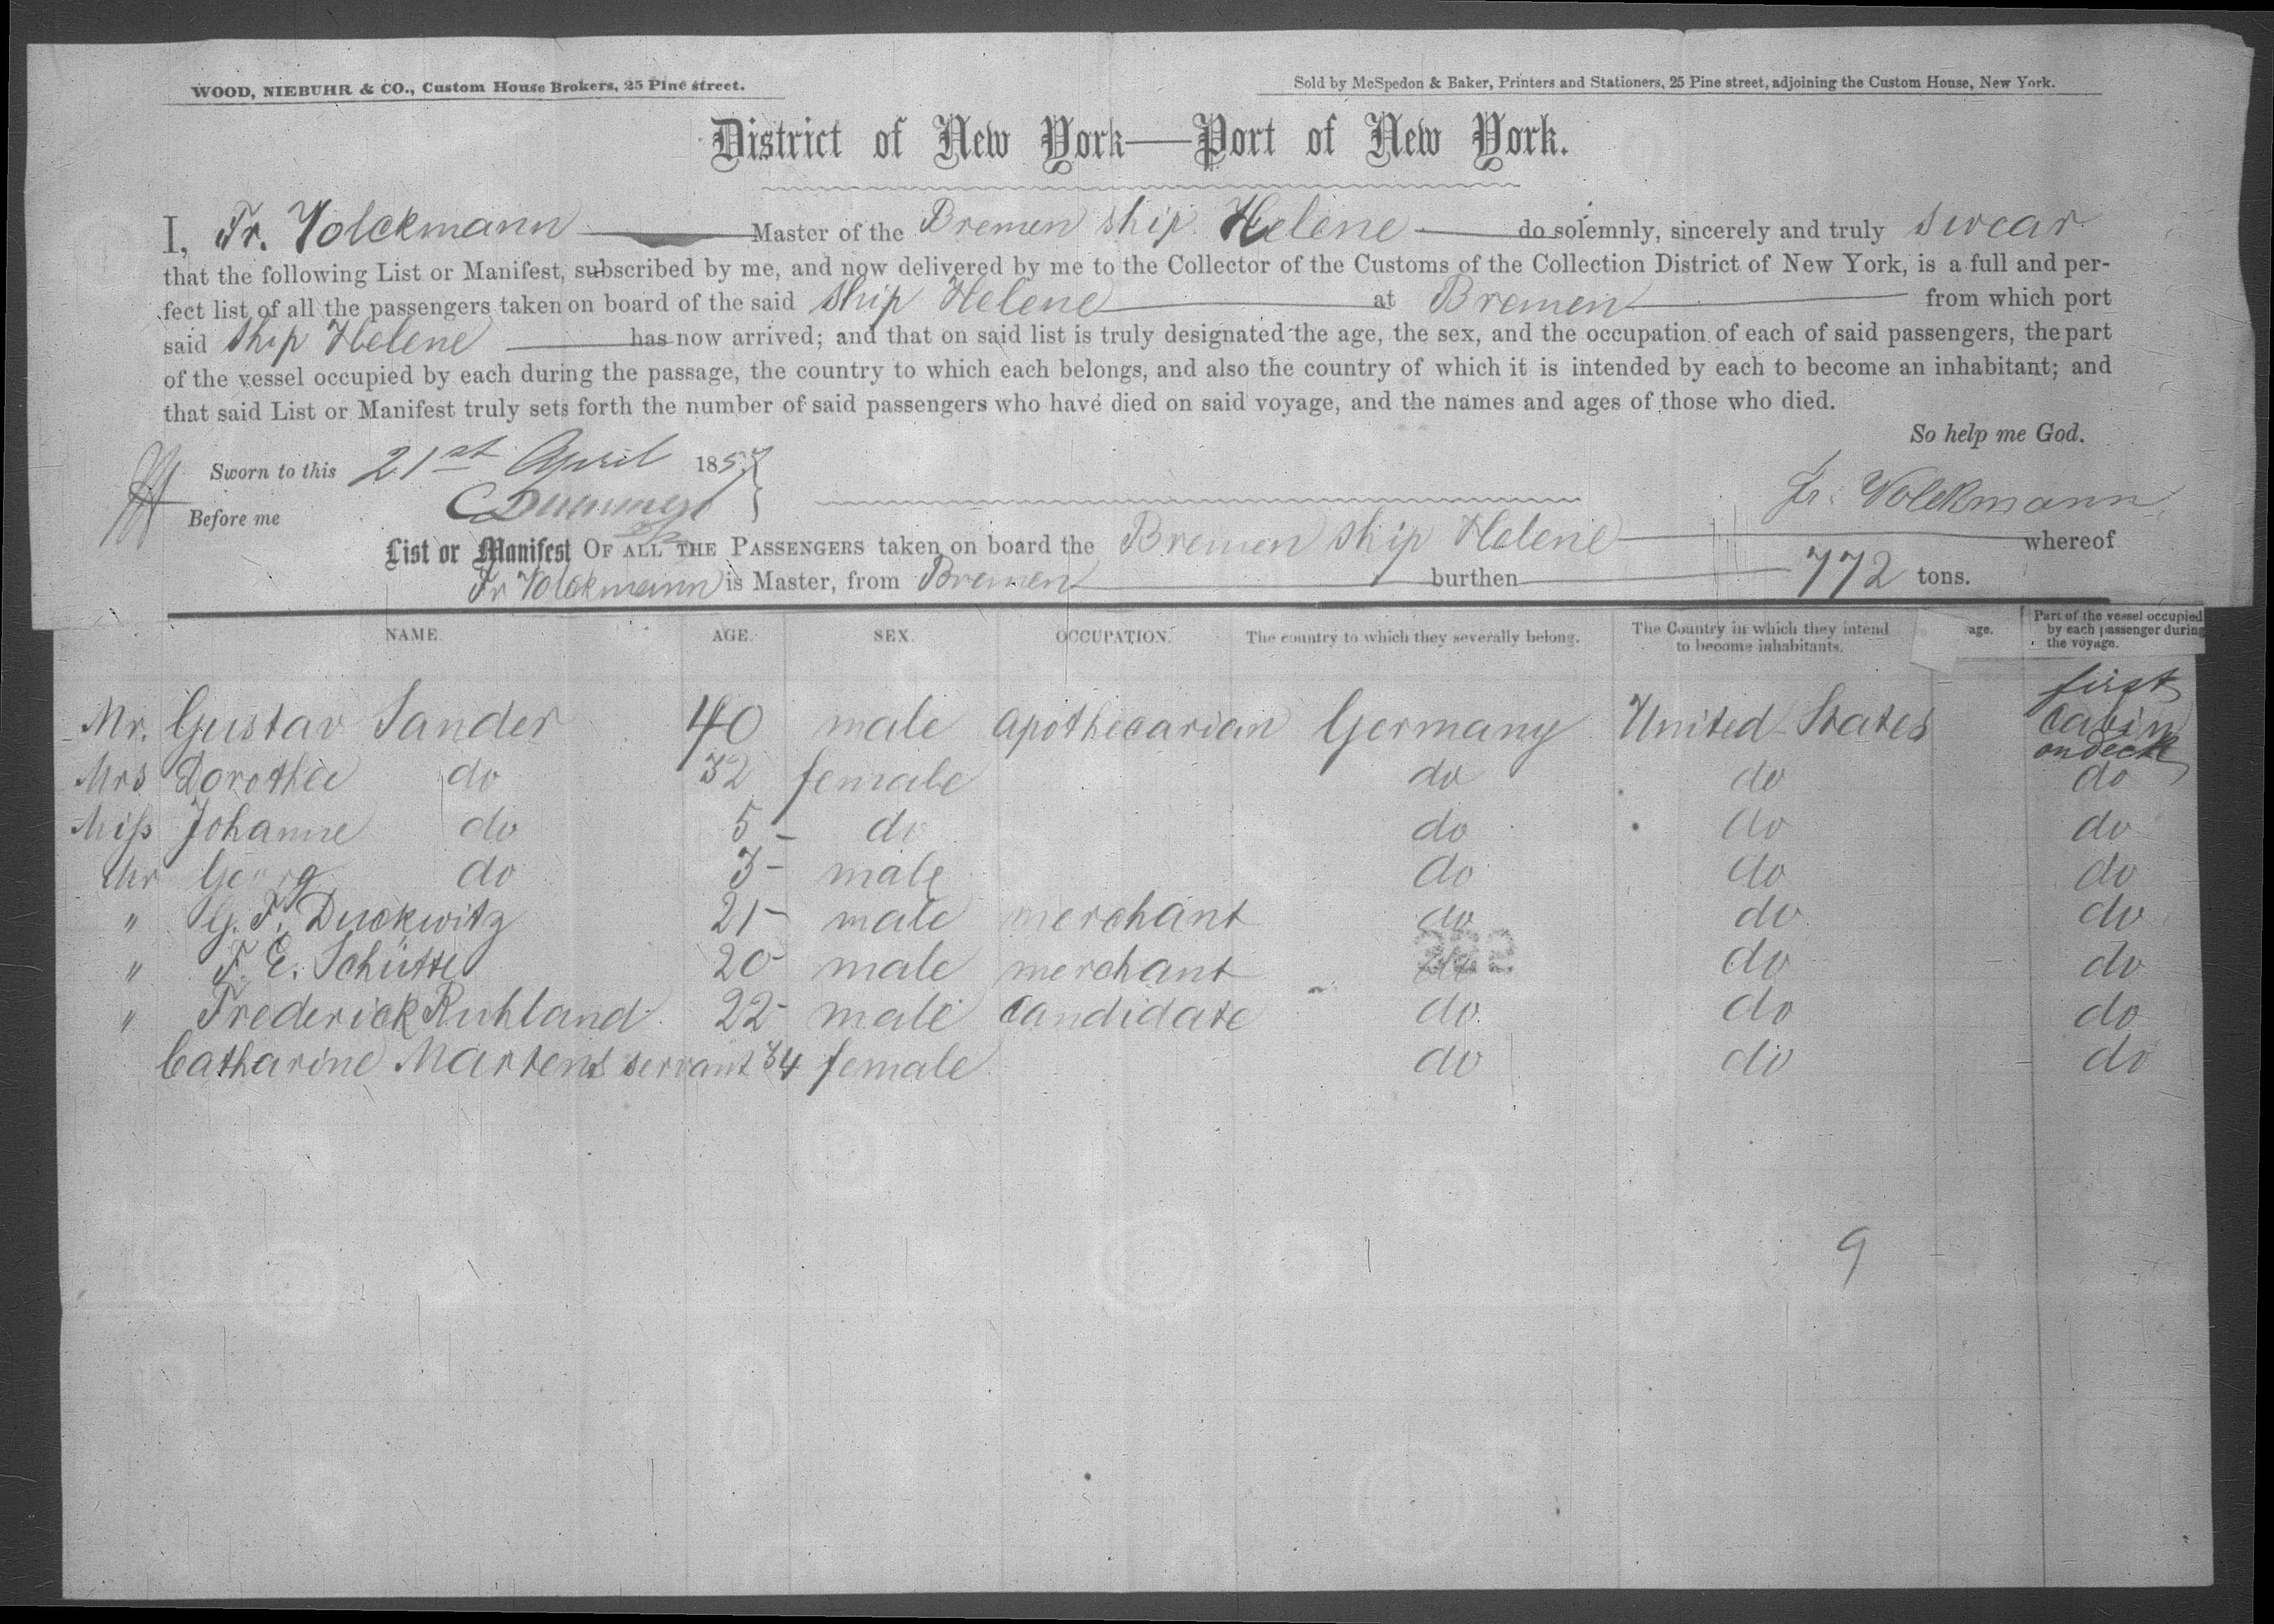 WOOD, NIEBUHR & CO., Custom House Brokers, 25 Pine street.
Sold by McSpedon & Baker, Printers and Stationers, 25 Pine street, adjoining the Custom House, New York.
District of New York—Port of New York.
I, Fr. Volckmann Master of the Bremen ship Helene do solemnly, sincerely and truly swear
that the following List or Manifest, subscribed by me, and now delivered by me to the Collector of the Customs of the Collection District of New York, is a full and per-
fect list of all the passengers taken on board of the said ship Helene at Bremen from which port
said ship Helene has now arrived; and that on said list is truly designated the age, the sex, and the occupation of each of said passengers, the part
of the vessel occupied by each during the passage, the country to which each belongs, and also the country of which it is intended by each to become an inhabitant; and
that said List or Manifest truly sets forth the number of said passengers who have died on said voyage, and the names and ages of those who died.
So help me God.
Sworn to this 21st April 1857
Fr. Volckmann
Before me
List or Manifest OF ALL THE PASSENGERS taken on board the Bremen ship Helene whereof
Fr Volckmann is Master, from Bremen burthen 772 tons.
NAME. AGE. SEX. OCCUPATION. The country to which they severally belong. The Country in which they intend to become inhabitants. age. Part of the vessel occupied by each passenger during the voyage.
Mr. Gustav Sander 40 male apothecarian Germany United States first Cabin on deck
Mrs Dorothee do 32 female do do do
Miss Johanne do 5 - do do do do
Mr Georg do 3 - male do do do
" G. F. Duckwitz 21 - male merchant do do do
" F. E. Schütte 20 male merchant do do do
222
" Frederick Ruhland 22 - male candidate do do do
Catharine Martens servant 34 female do do do
9